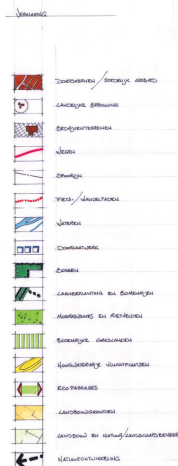 VERKLARING
DORPSKERNEN / STEDELIJK GEBIED
LANDELIJKE BEBOUWING
BEDRIJVENTERREINEN
WEGEN
SPOORLIJN
FIETS- / WANDELPADEN
WATEREN
DUINLANDWEER
BOSSEN
LAANBEPLANTING EN BOMENRIJEN
MOERASZONES EN RIETVELDEN
BLOEMRIJKE GRASLANDEN
HOOGWAARDIGE VLUCHTPLAATSEN
ECO PASSAGES
LANDBOUWGRONDEN
LANDBOUW EN NATUUR/LANDSCHAPSBEHEER
NATUURONTWIKKELING